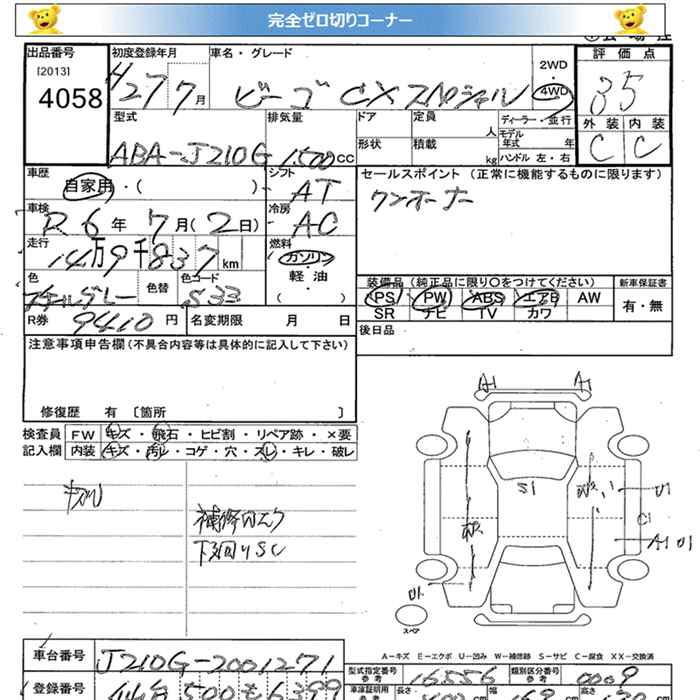 完全ゼロ切りコーナー
出品番号 初度登録年月 車名・グレード 評価点
[2013] 4058 H27 7月 ビーゴ CX スペシャル 2WD 4WD 3.5
外装 内装
C C
型式 排気量 ドア 定員 人 ディーラー・並行
形状 積載 kg モデル年式 年
ABA-J210G 1500CC ハンドル 左・右
車歴 シフト セールスポイント(正常に機能するものに限ります)
自家用・( ) AT ワンオーナー
車検 冷房
R6年7月(2日) AC
走行 燃料
14万9千837km ガソリン
色 色替 色コード 軽・油
グレー S33 ( )
装備品(純正品に限り○をつけてください) 新車保証書
PS PW ABS エアB AW 有・無
SR ナビ TV カワ
R券 9410円 名変期限 月 日 後日品
注意事項申告欄(不具合内容等は具体的に記入して下さい)
修復歴 有〔箇所 〕
検査員 FW キズ・飛石・ヒビ割・リペア跡・×要
記入欄 内装 キズ・汚レ・コゲ・穴・スレ・キレ・破レ
A1 A1
S1 U1
C1
A1 U1
補修有
下回りSC
U1
スペア
A-キズ E-エクボ U-凹み W-補修跡 S-サビ C-腐食 XX-交換済
車台番号 J210G-2001271 型式指定番号 参考 16556 類別区分番号 参考 0009
登録番号 仙台 500 も 6399 車検証明用 参考 長さ cm 幅 cm 高さ cm